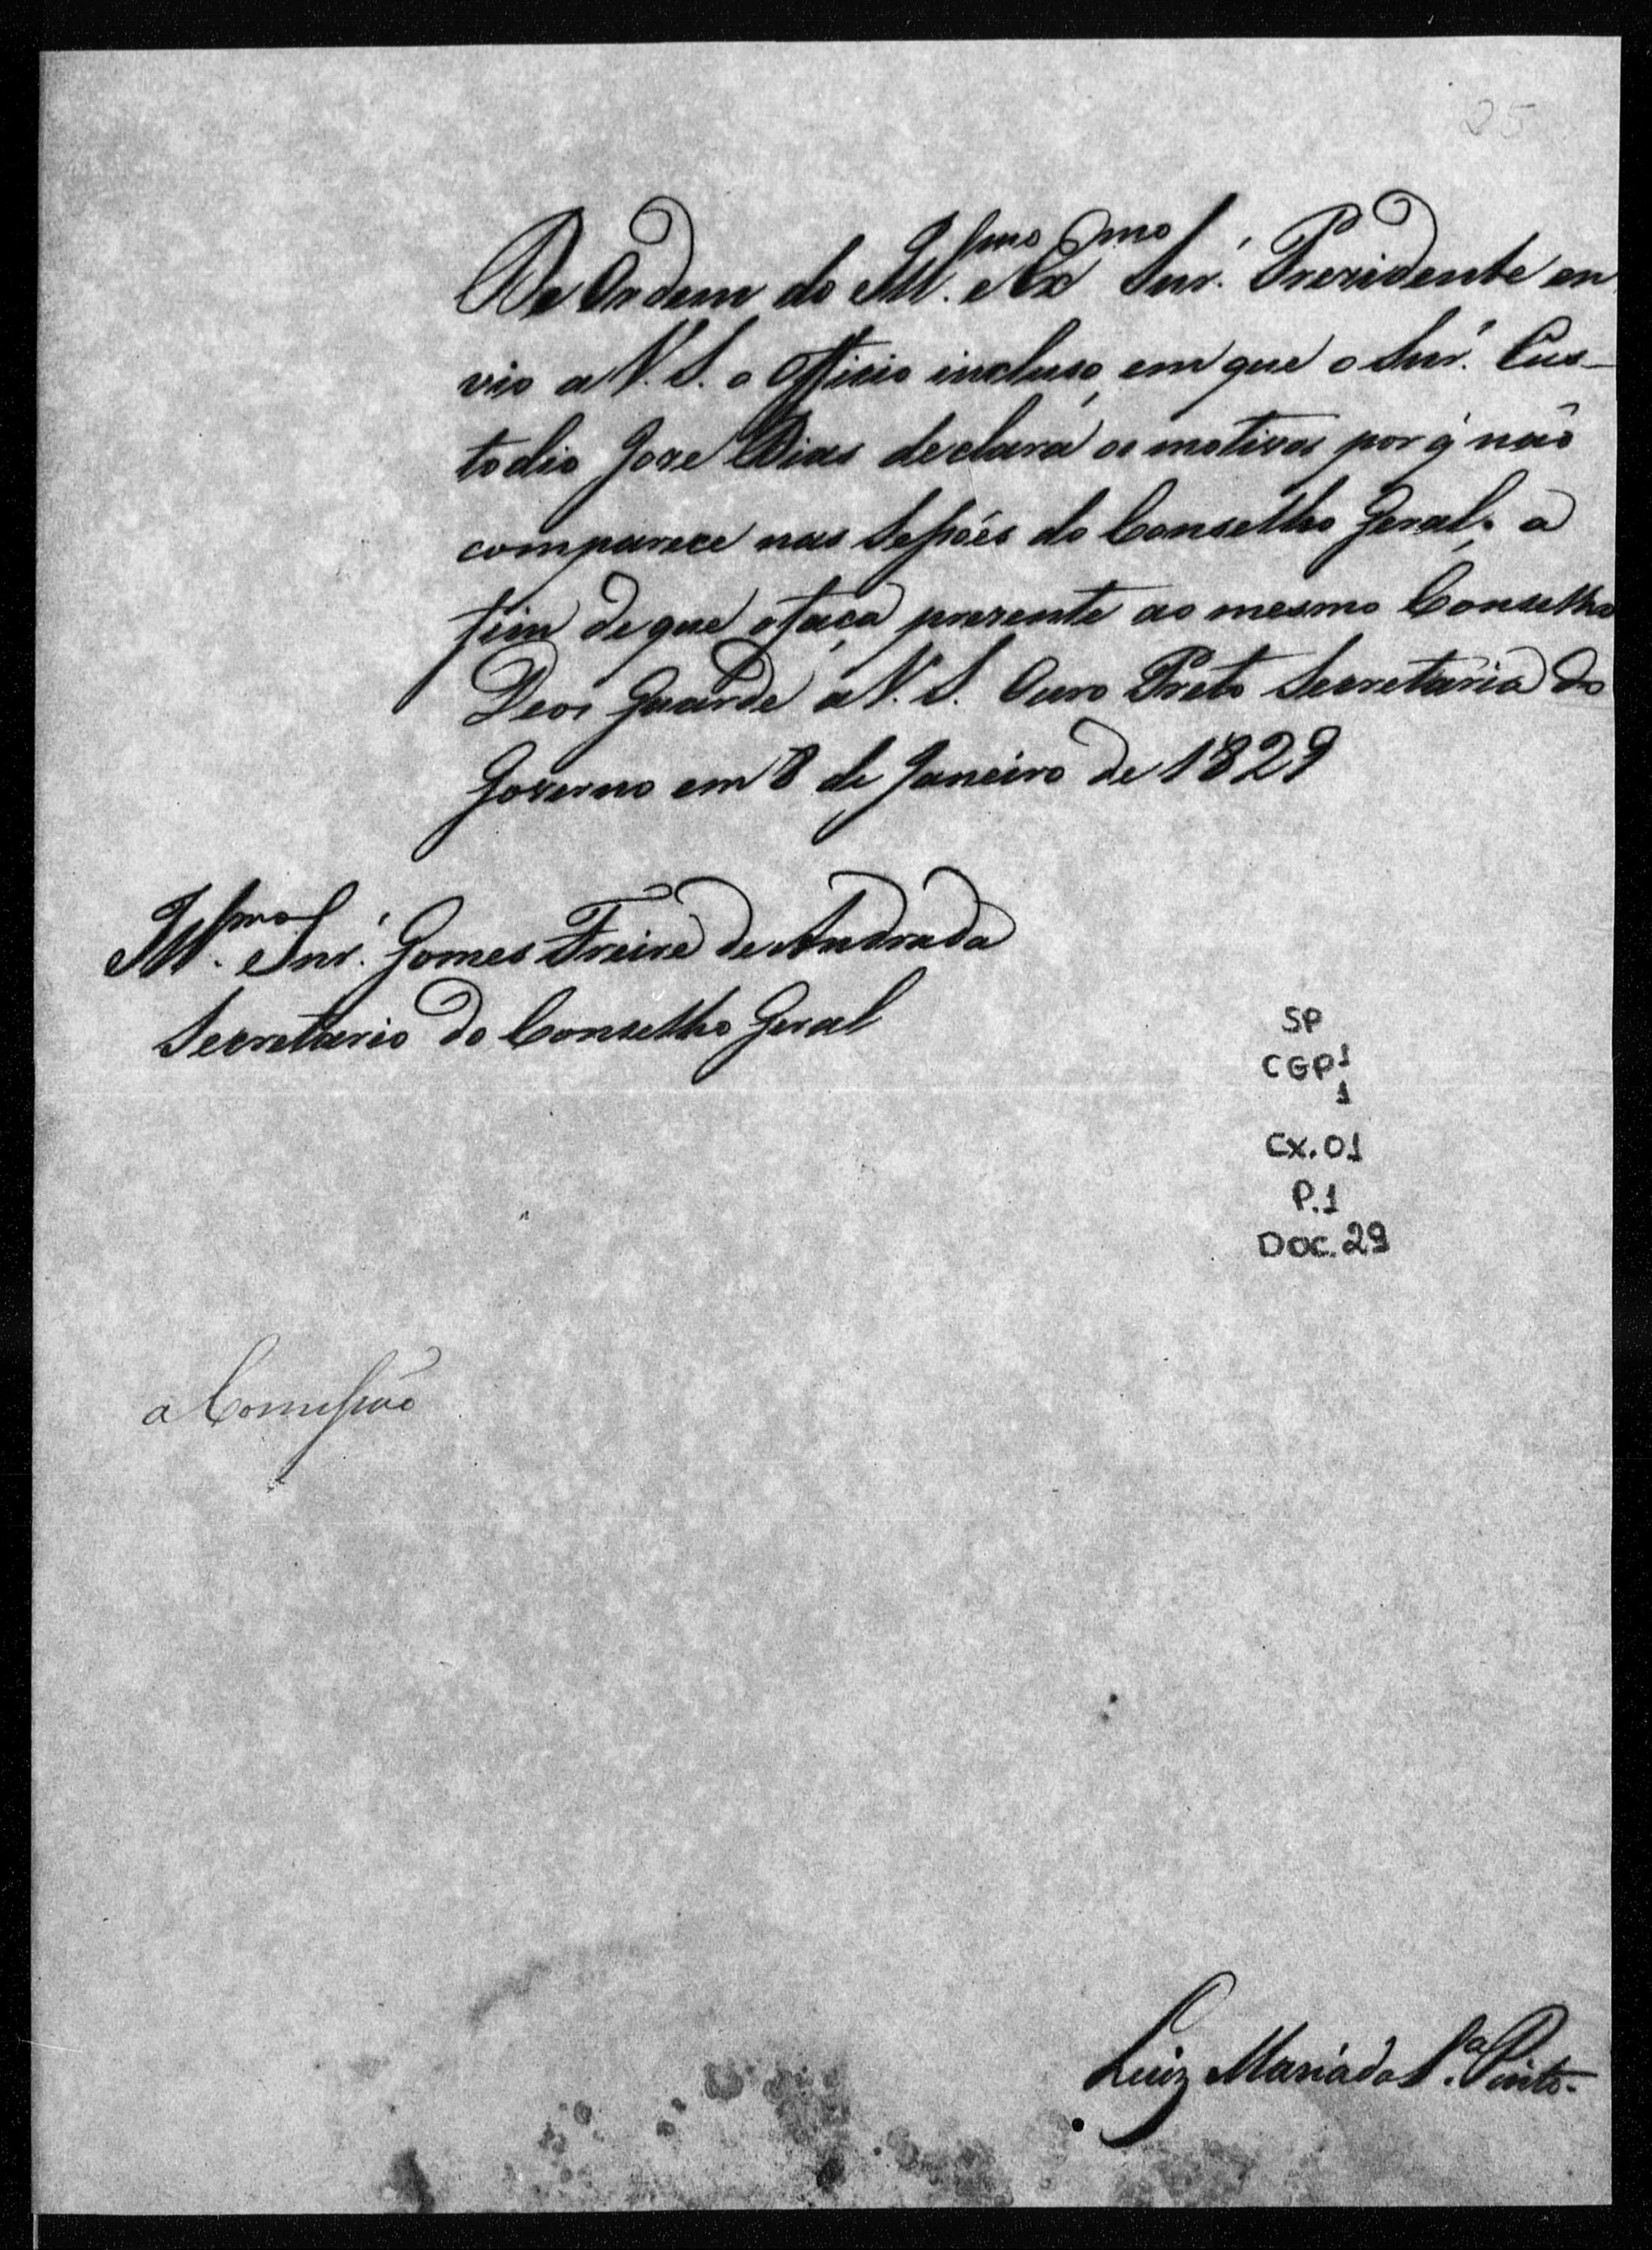 25
De Ordem do Ill.mo e Ex.mo Snr. Prezidente en
vio a V. S. o Officio incluso, em que o Snr. Cus-
todio Joze Dias declara os motivos por q̃ não
comparece nas Sessoẽs do Conselho Geral; a
fim de que o faça prezente ao mesmo Conselho
Deos Guarde a V. S. Ouro Preto Secretaria do
Governo em 8 de Janeiro de 1829
Ill.mo Snr. Gomes Freire de Andrada
Secretario do Conselho Geral
SP
CGP1
1
Cx. 01
P.1
Doc. 29
a Comissão
Luiz Maria da S.a Pinto.